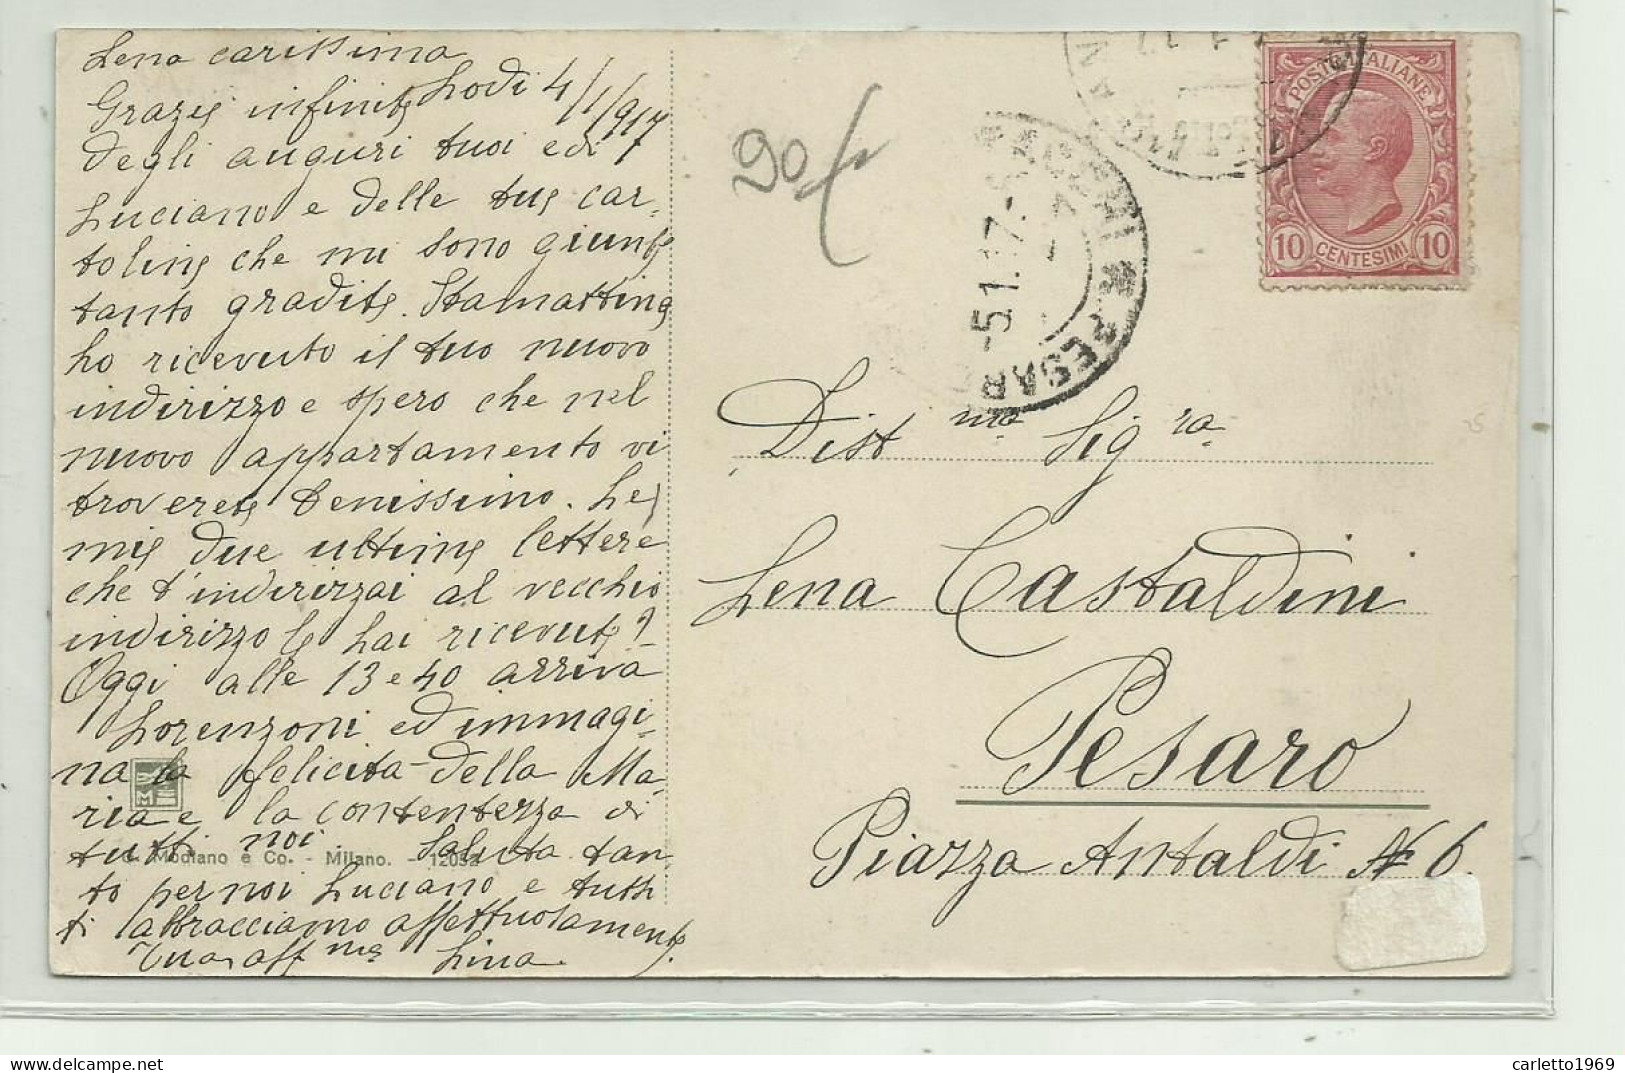 Lena carissima
Lodi 4/1/917
Grazie infinite
degli auguri tuoi e di
Luciano e delle tue car-
toline che mi sono giunte
tanto gradite. Stamattina
ho ricevuto il tuo nuovo
indirizzo e spero che nel
nuovo appartamento vi
troverete benissimo. Le
mie due ultime lettere
che t'indirizzai al vecchio
indirizzo le hai ricevute?
Oggi alle 13 e 40 arriva
Lorenzoni ed immagi-
na la felicità della Ma-
ria e la contentezza di
tutti noi. Saluta tan-
to per noi Luciano e tutti
ti abbracciamo affettuosamente.
Tua aff.ma Lina.
G. Modiano e Co. - Milano. - 12052
90
-5.1.17.
PESARO
POSTE ITALIANE
10 CENTESIMI 10
Dist.ma Sig.ra
Lena Castaldini
Pesaro
Piazza Antaldi N 6.
carletto1969